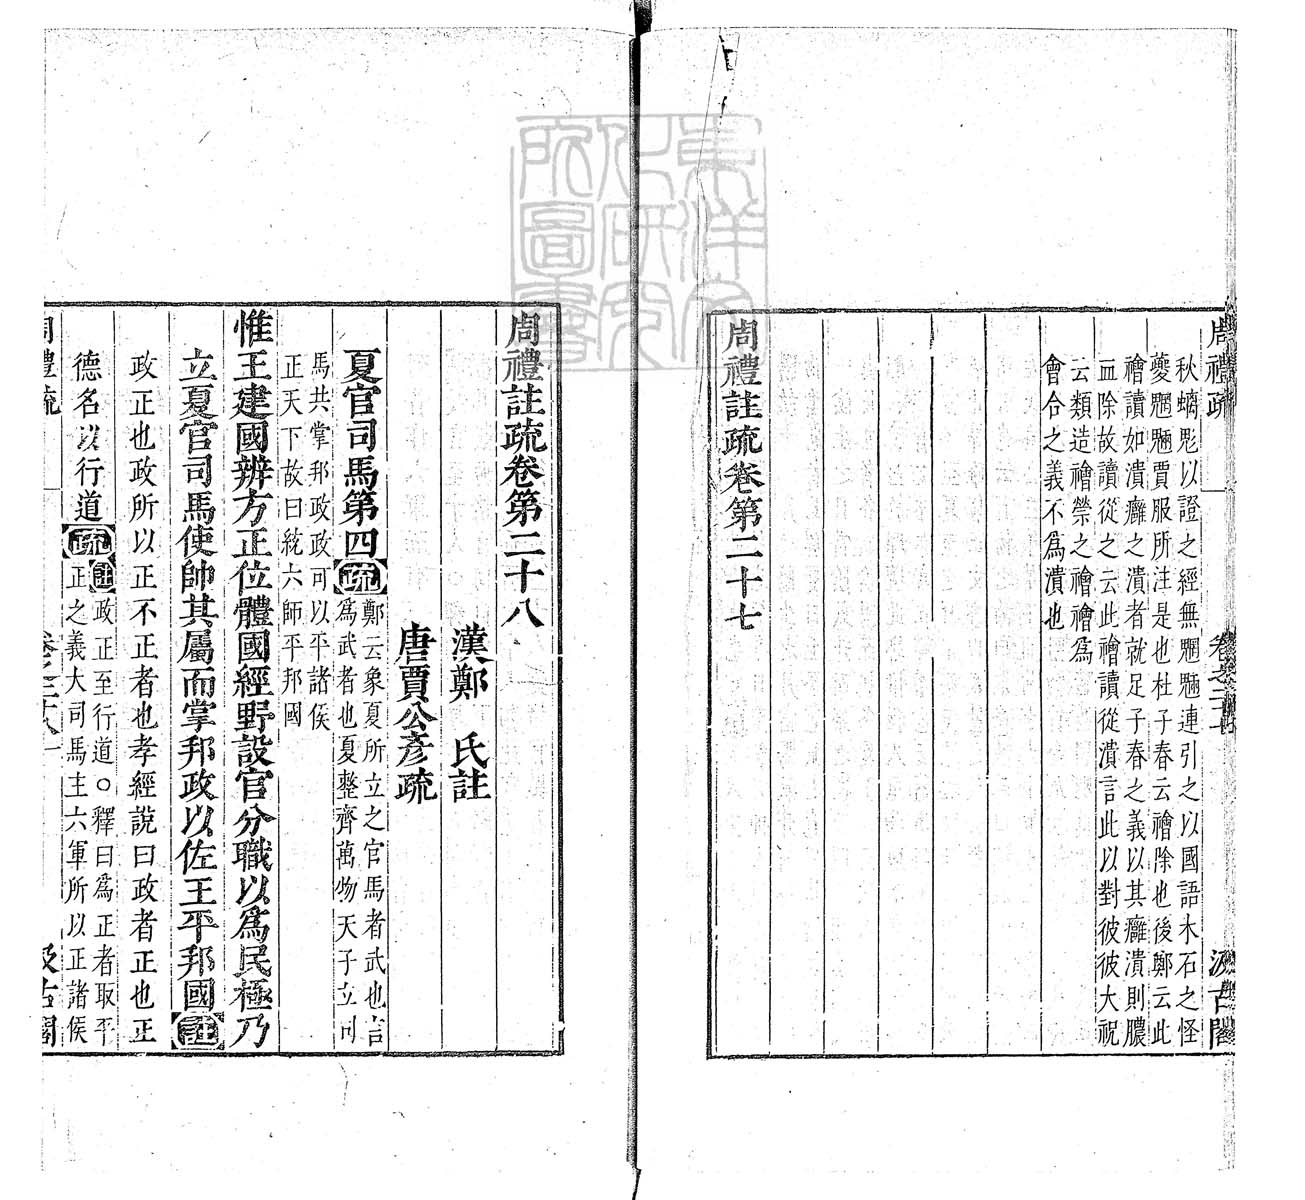 周禮疏 卷之二十七 汲古閣
秋螭鬽以證之經無魍魎連引之以國語木石之怪
夔魍魎賈服所注是也杜子春云禬除也後鄭云此
禬讀如潰癰之潰者就足子春之義以其癰潰則膿
血除故讀從之云此禬讀從潰言此以對彼彼大祝
云類造禬禜之禬禬爲
會合之義不爲潰也
周禮註疏卷第二十七
周禮註疏卷第二十八
漢鄭 氏註
唐賈公彥疏
夏官司馬第四
疏
鄭云象夏所立之官馬者武也言
爲武者也夏整齊萬物天子立司
馬共掌邦政政可以平諸侯
正天下故曰統六師平邦國
惟王建國辨方正位體國經野設官分職以爲民極乃
立夏官司馬使帥其屬而掌邦政以佐王平邦國註
政正也政所以正不正者也孝經說曰政者正也正
德名以行道疏
註政正至行道○釋曰爲正者取平
正之義大司馬主六軍所以正諸侯
周禮疏 卷之二十八 一 汲古閣
東洋文化研究所圖書